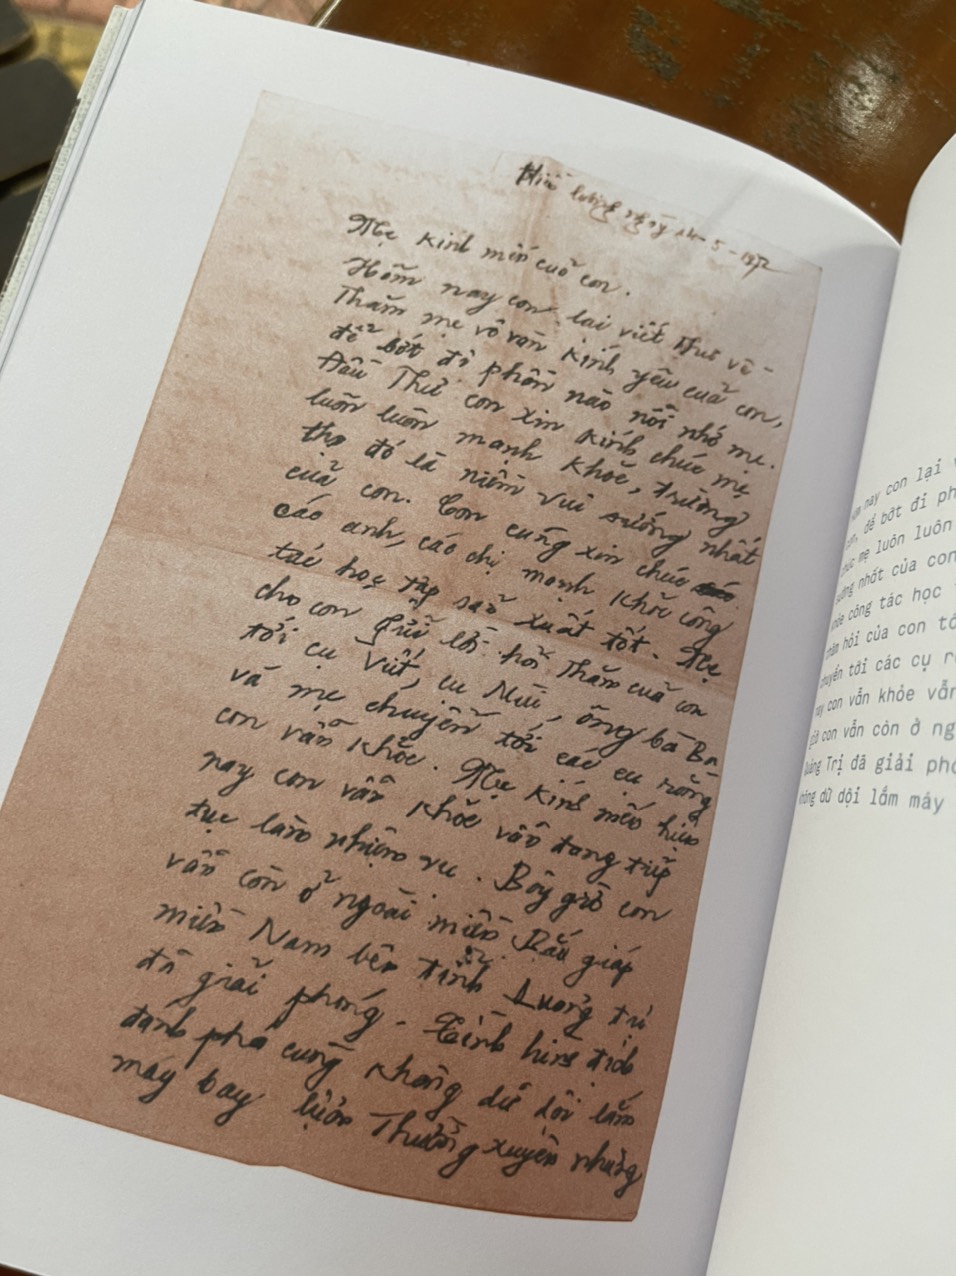 Hiền lương ngày 5-1972
Mẹ kính mến cuả con.
Hôm nay con lại viết thư về
Thăm mẹ vô vàn kính yêu cuả con,
để bớt đi phần nào nỗi nhớ mẹ.
Đầu Thư con xin kính chúc mẹ
luôn luôn mạnh khỏe, trường
thọ đó là niềm vui sướng nhất
cuả con. Con cũng xin chúc
các anh, các chị mạnh khỏe công
tác học tập sản xuất tốt. Mẹ
cho con gửi lời hỏi Thăm cuả con
tới cụ Viết, cụ Mùi, ông bà Ba
và mẹ chuyển tới các cụ rằng
con vẫn khỏe. Mẹ kính mến hiện
nay con vẫn khỏe vẫn đang tiếp
tục làm nhiệm vụ. Bây giờ con
vẫn còn ở ngoài miền Bắc giáp
miền Nam bên tỉnh Quảng trị
đã giải phóng. Tình hình địch
đánh phá cũng không dữ dội lắm
máy bay lượn Thường xuyên nhưng
nay con lại v
để bớt đi ph
chúc mẹ luôn luôn
sướng nhất của con
khỏe công tác học
thăm hỏi của con tớ
chuyển tới các cụ r
nay con vẫn khỏe vẫn
giờ con vẫn còn ở ng
Quảng Trị đã giải phó
không dữ dội lắm máy